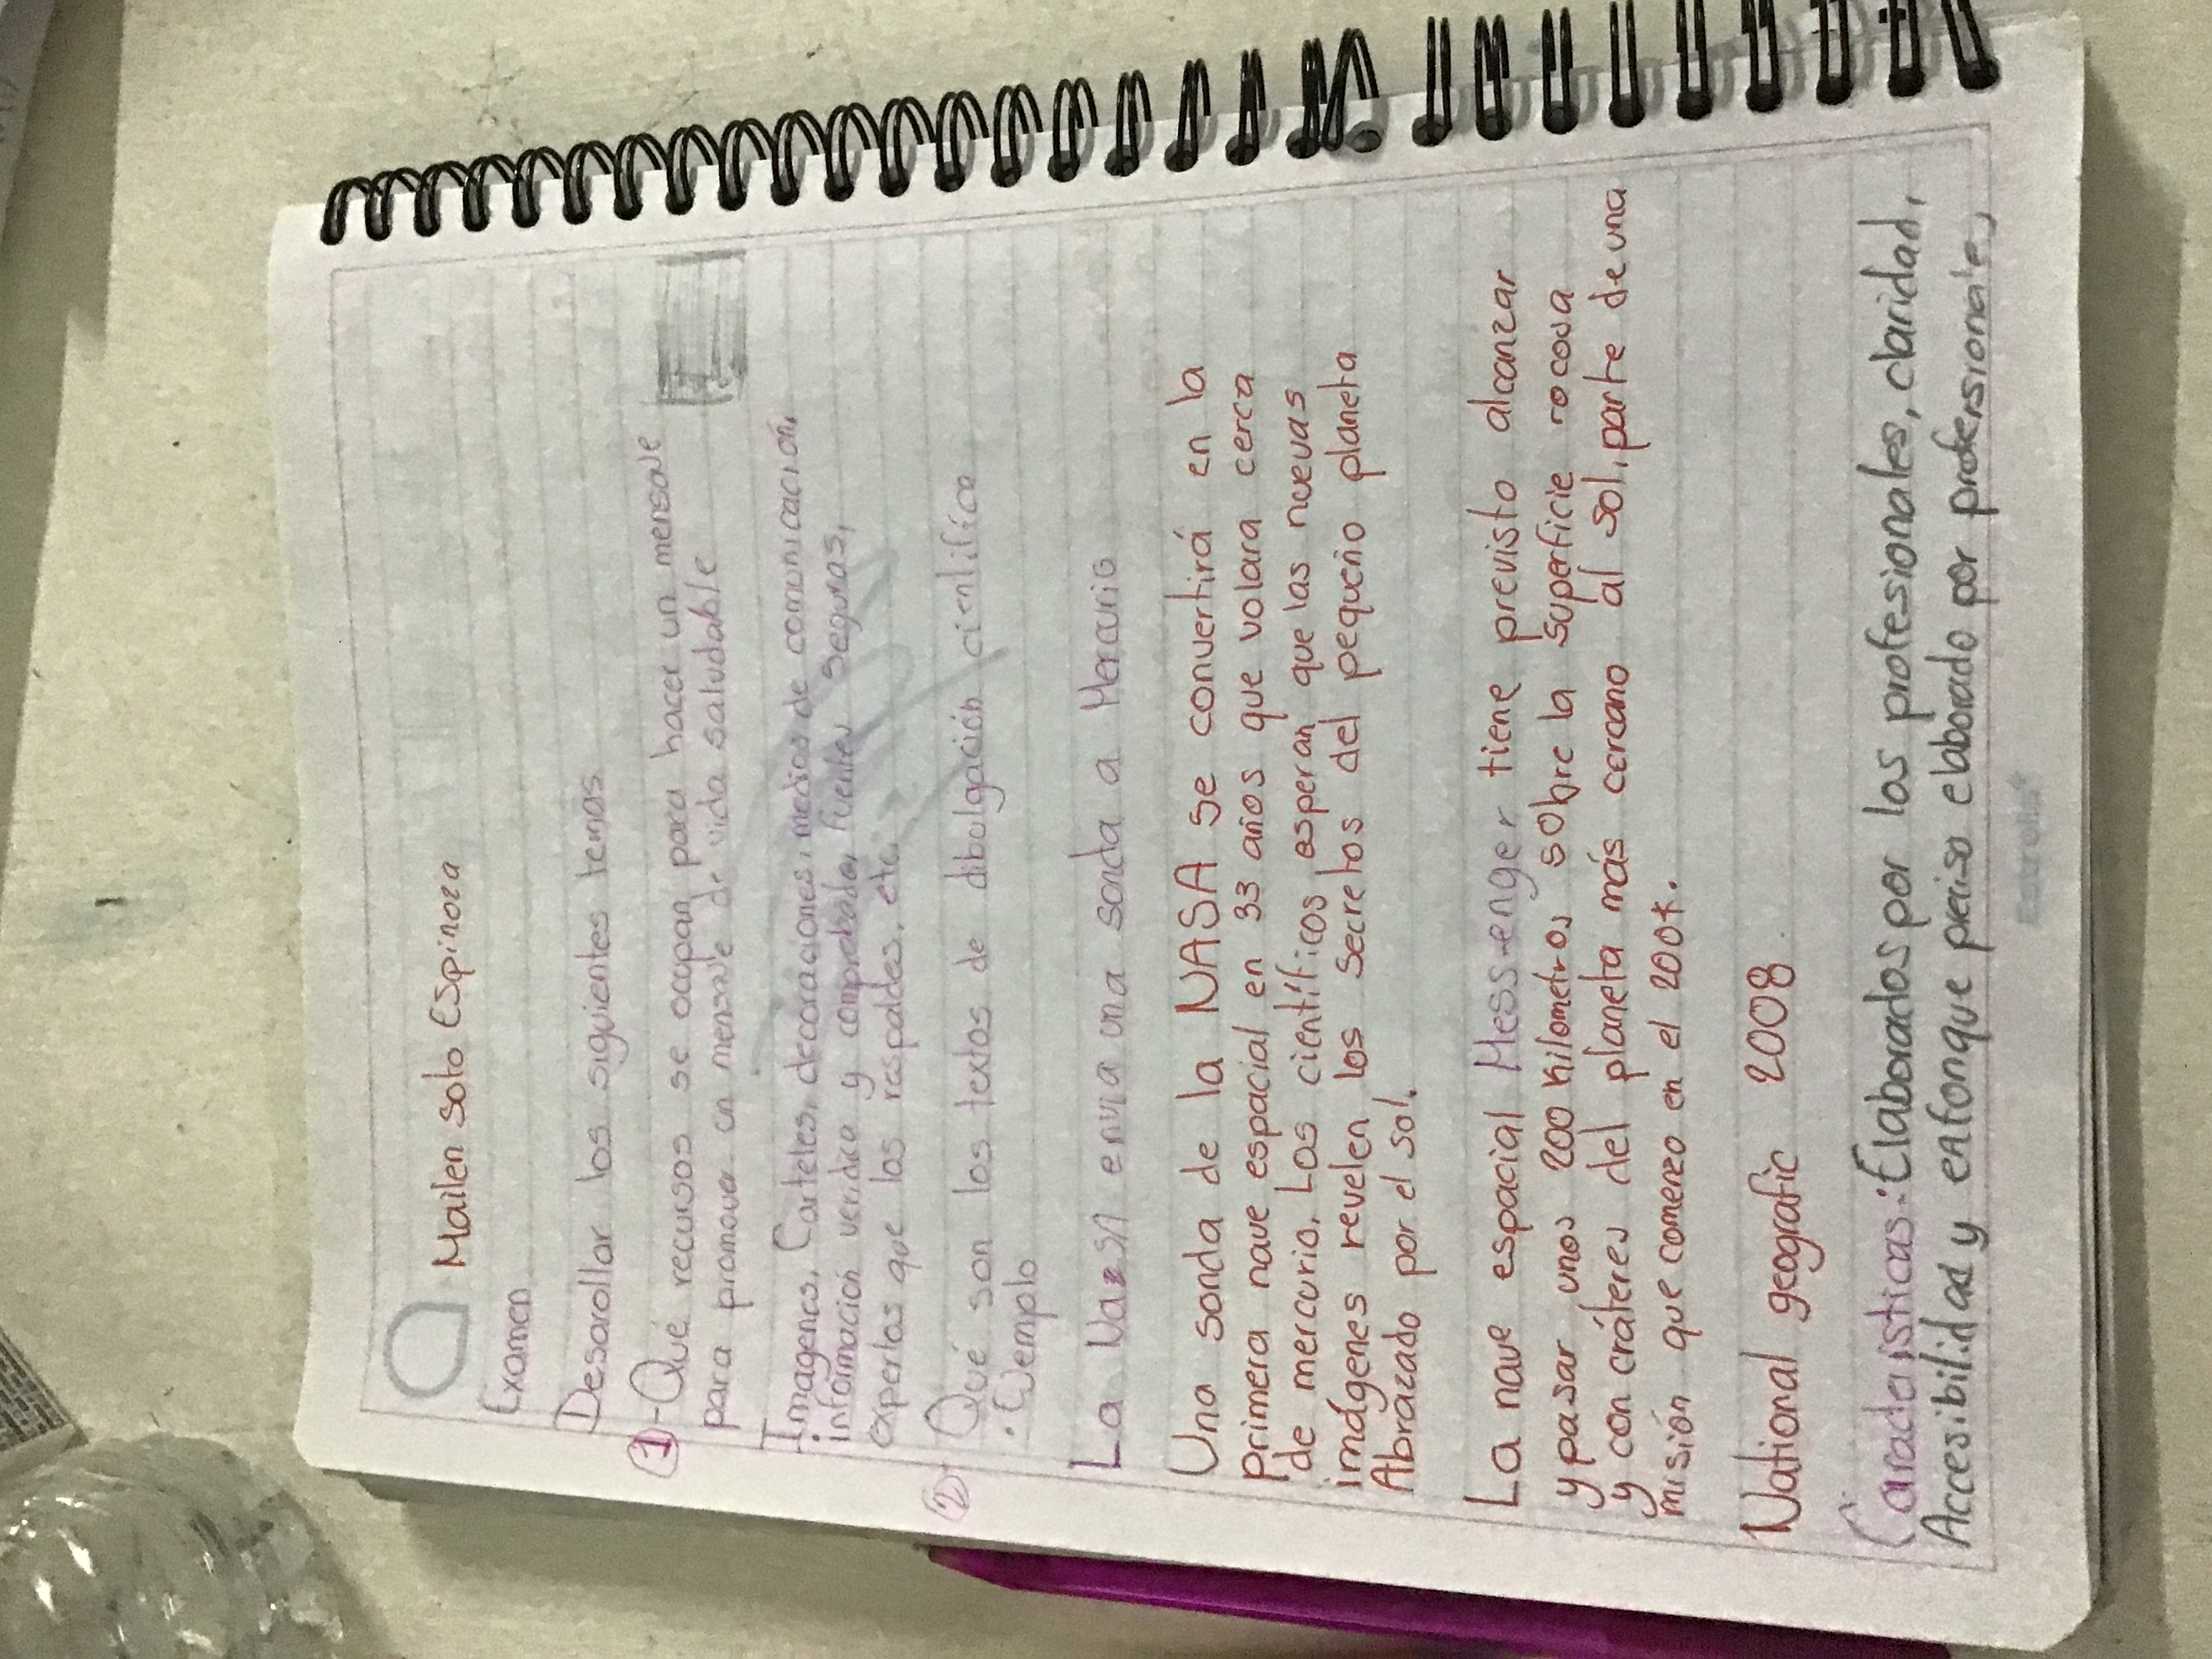 Mailen Soto Espinoza
Examen
Desarollar los siguientes temas
1-Qué recursos se ocupan para hacer un mensaje
para promover un mensaje de vida saludable
Imagenes, Carteles, decoraciones, medios de comunicación,
información veridica y comprobada, fuentes seguras,
expertos que los respalden, etc.
2- Qué son los textos de dibulgación científica
• Ejemplo
La Nasa envia una sonda a Mercurio
Una sonda de la NASA se convertirá en la
primera nave espacial en 33 años que volara cerca
de mercurio. Los científicos esperan que las nuevas
imágenes revelen los secretos del pequeño planeta
Abrazado por el sol.
La nave espacial Messenger tiene previsto alcanzar
y pasar unos 200 kilometros sobre la superficie rocosa
y con cráteres del planeta más cercano al sol, parte de una
misión que comenzo en el
National geografic 2008
Caracteristicas: Elaborados por los profesionales, claridad,
Accesibilidad y enfonque preciso elaborado por profersionale,
Estrella